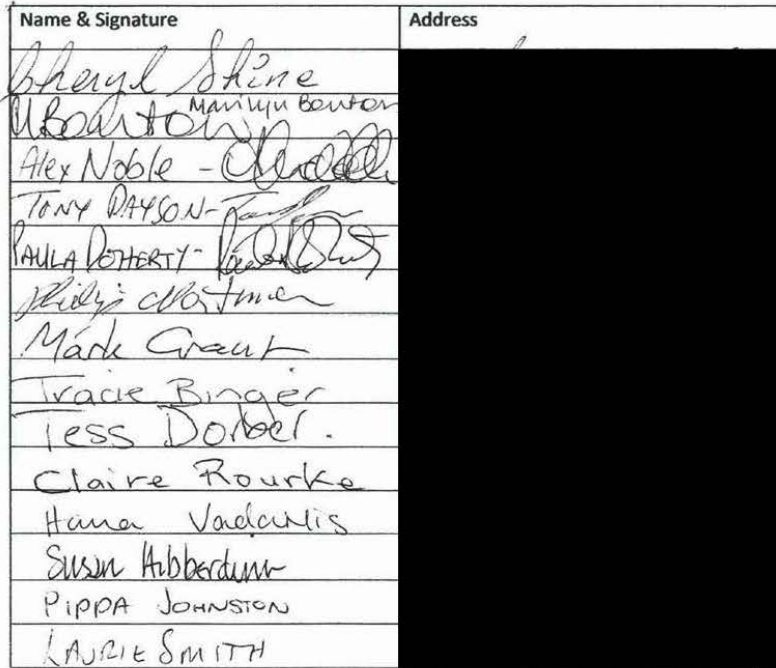 Name & Signature Address
Cheryl Shine
Marilyn Benton
Alex Noble -
TONY DAYSON -
PAULA DOHERTY -
Philip
Mark Grant
Tracie Binger
Tess Dorber.
Claire Rourke
Hana
Susan
PIPPA JOHNSTON
LAURIE SMITH